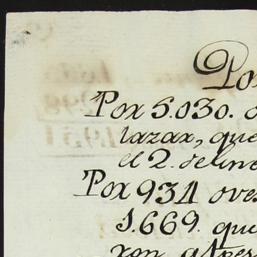 Po
Por 5.030. o
lazar, que
el 2. de ene
Por 931 ove
1.669. que
ron al tres